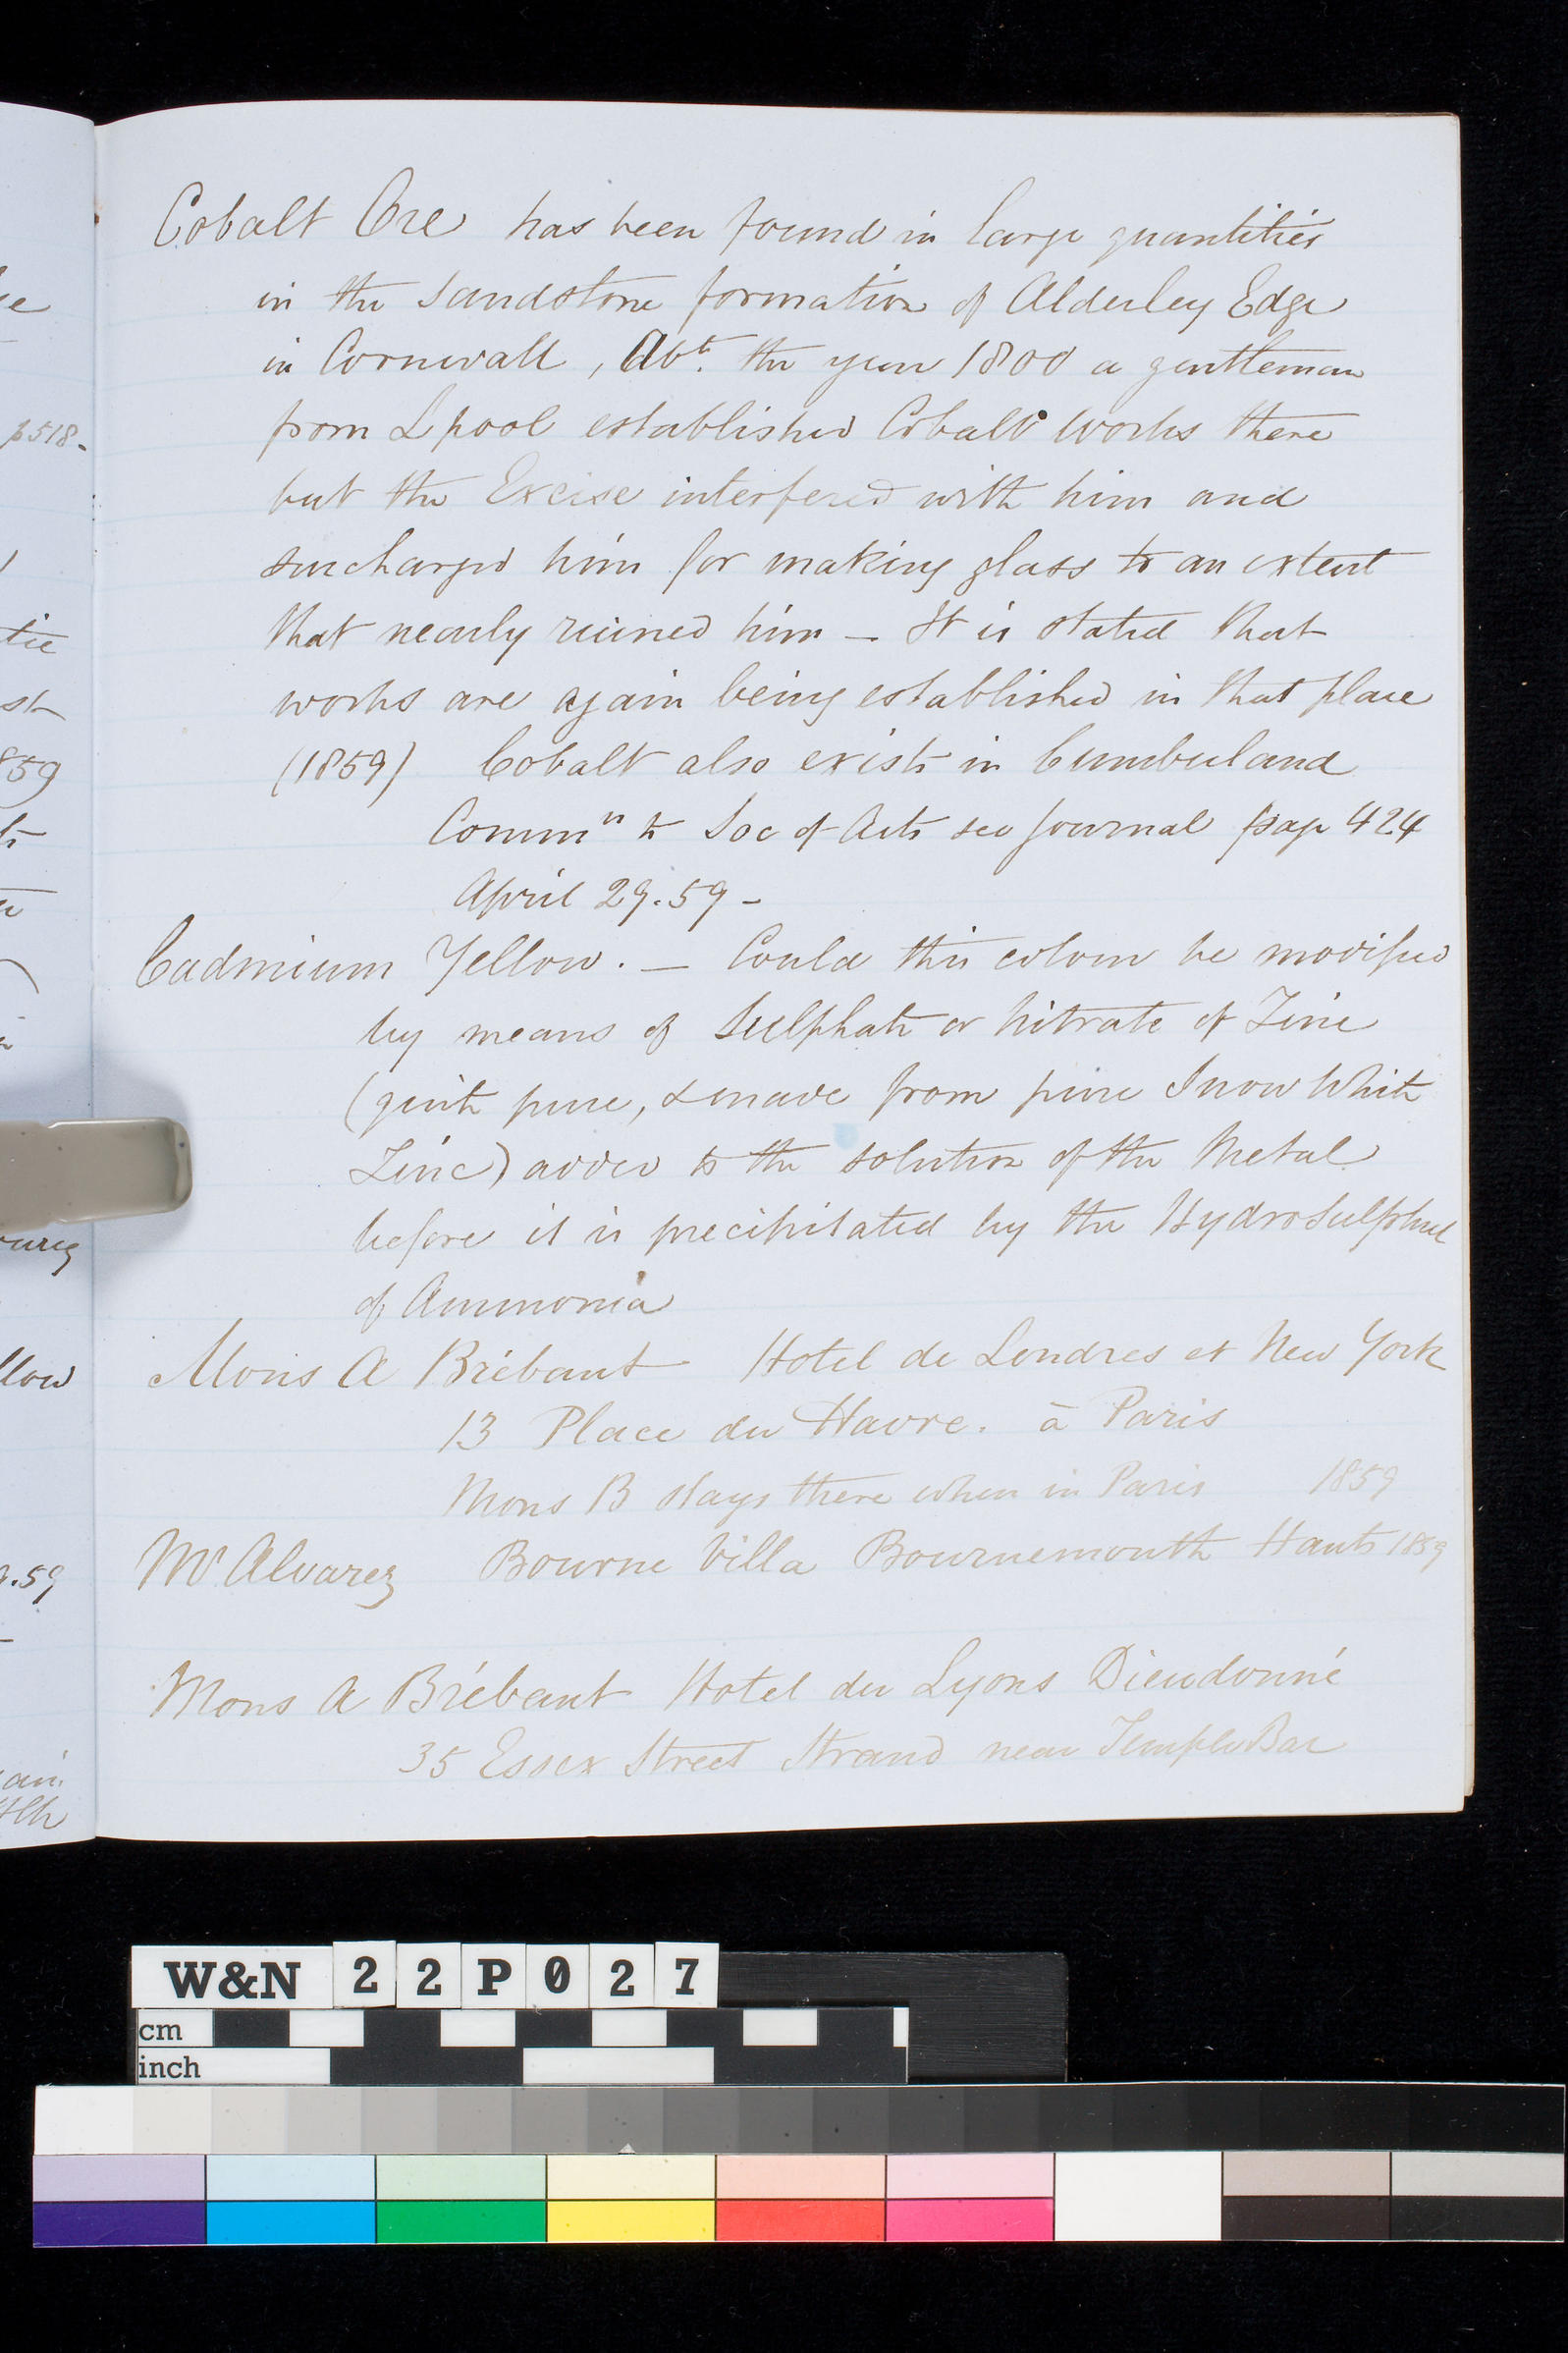 Cobalt Ore has been found in large quantities
in the Sandstone formation of Alderley Edge
in Cornwall, Abt. the year 1800 a gentleman
from Lpool established Cobalt works there
but the Excise interfered with him and
surcharged him for making glass to an extent
that nearly ruined him — It is stated that
works are again being established in that place
(1859) Cobalt also exists in Cumberland
Commn to Soc of Arts see Journal page 424
April 29.59 -
Cadmium Yellow. — Could this colour be modified
by means of Sulphate or Nitrate of Zinc
(quite pure, & made from pure Snow White
Zinc) added to the solution of the Metal
before it is precipitated by the HydroSulphuret
of Ammonia
Mons A Brébant Hotel de Londres et New York
13 Place du Havre. à Paris
Mons B stays there when in Paris 1859
Mr Alvarez Bourne Villa Bournemouth Hants 1859
Mons A Brébant Hotel du Lyons Dieudonné
35 Essex Street Strand near Temple Bar
se
p518-
tie
st
859
llow
.59
W&N 22P027
cm
inch